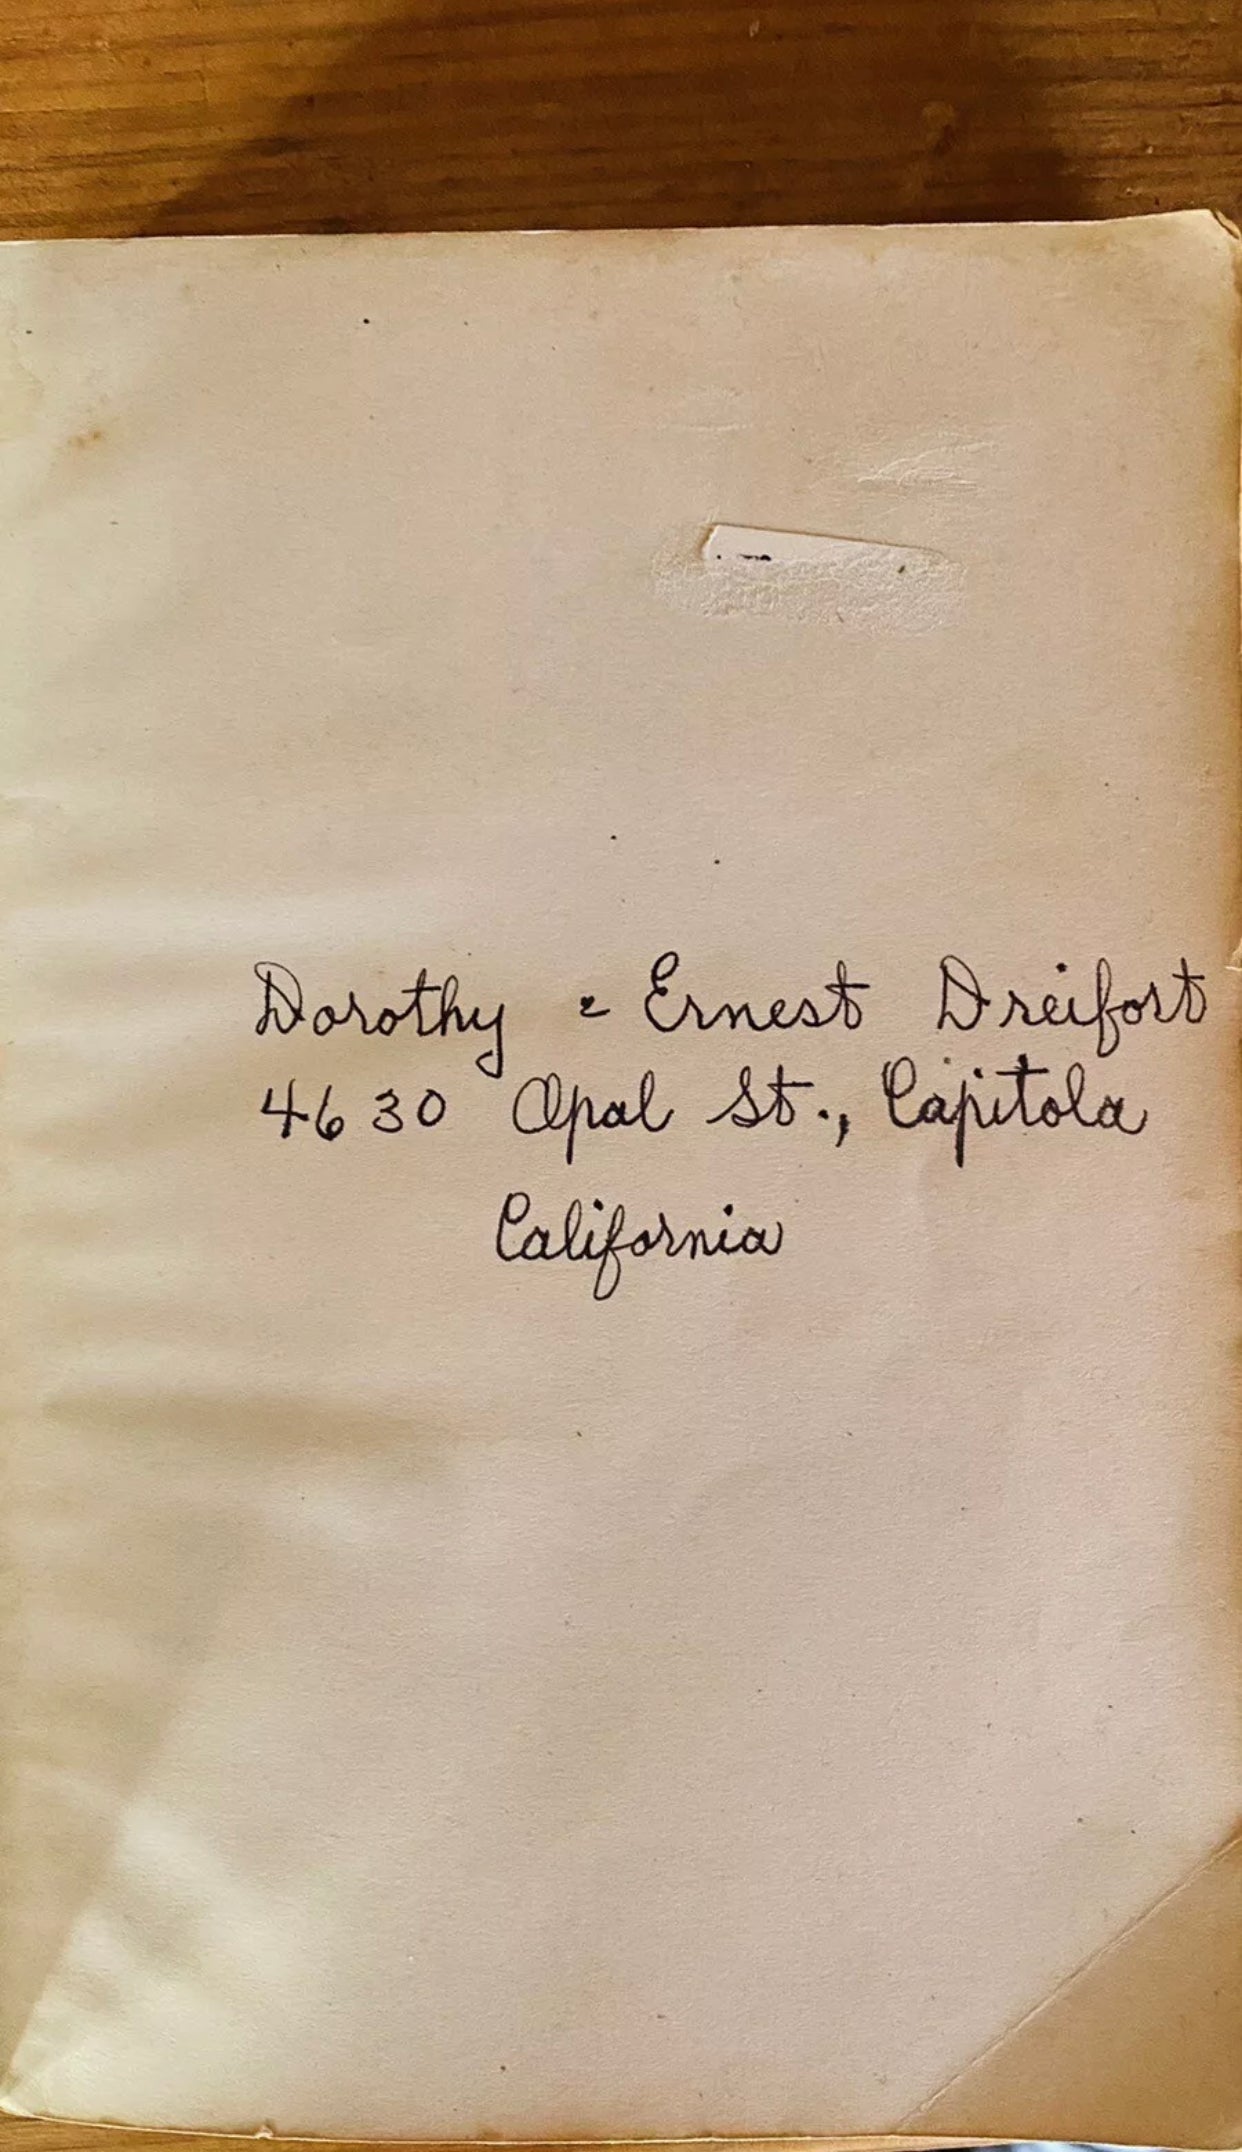 Dorothy & Ernest Dreifort
4630 Opal St., Capitola
California